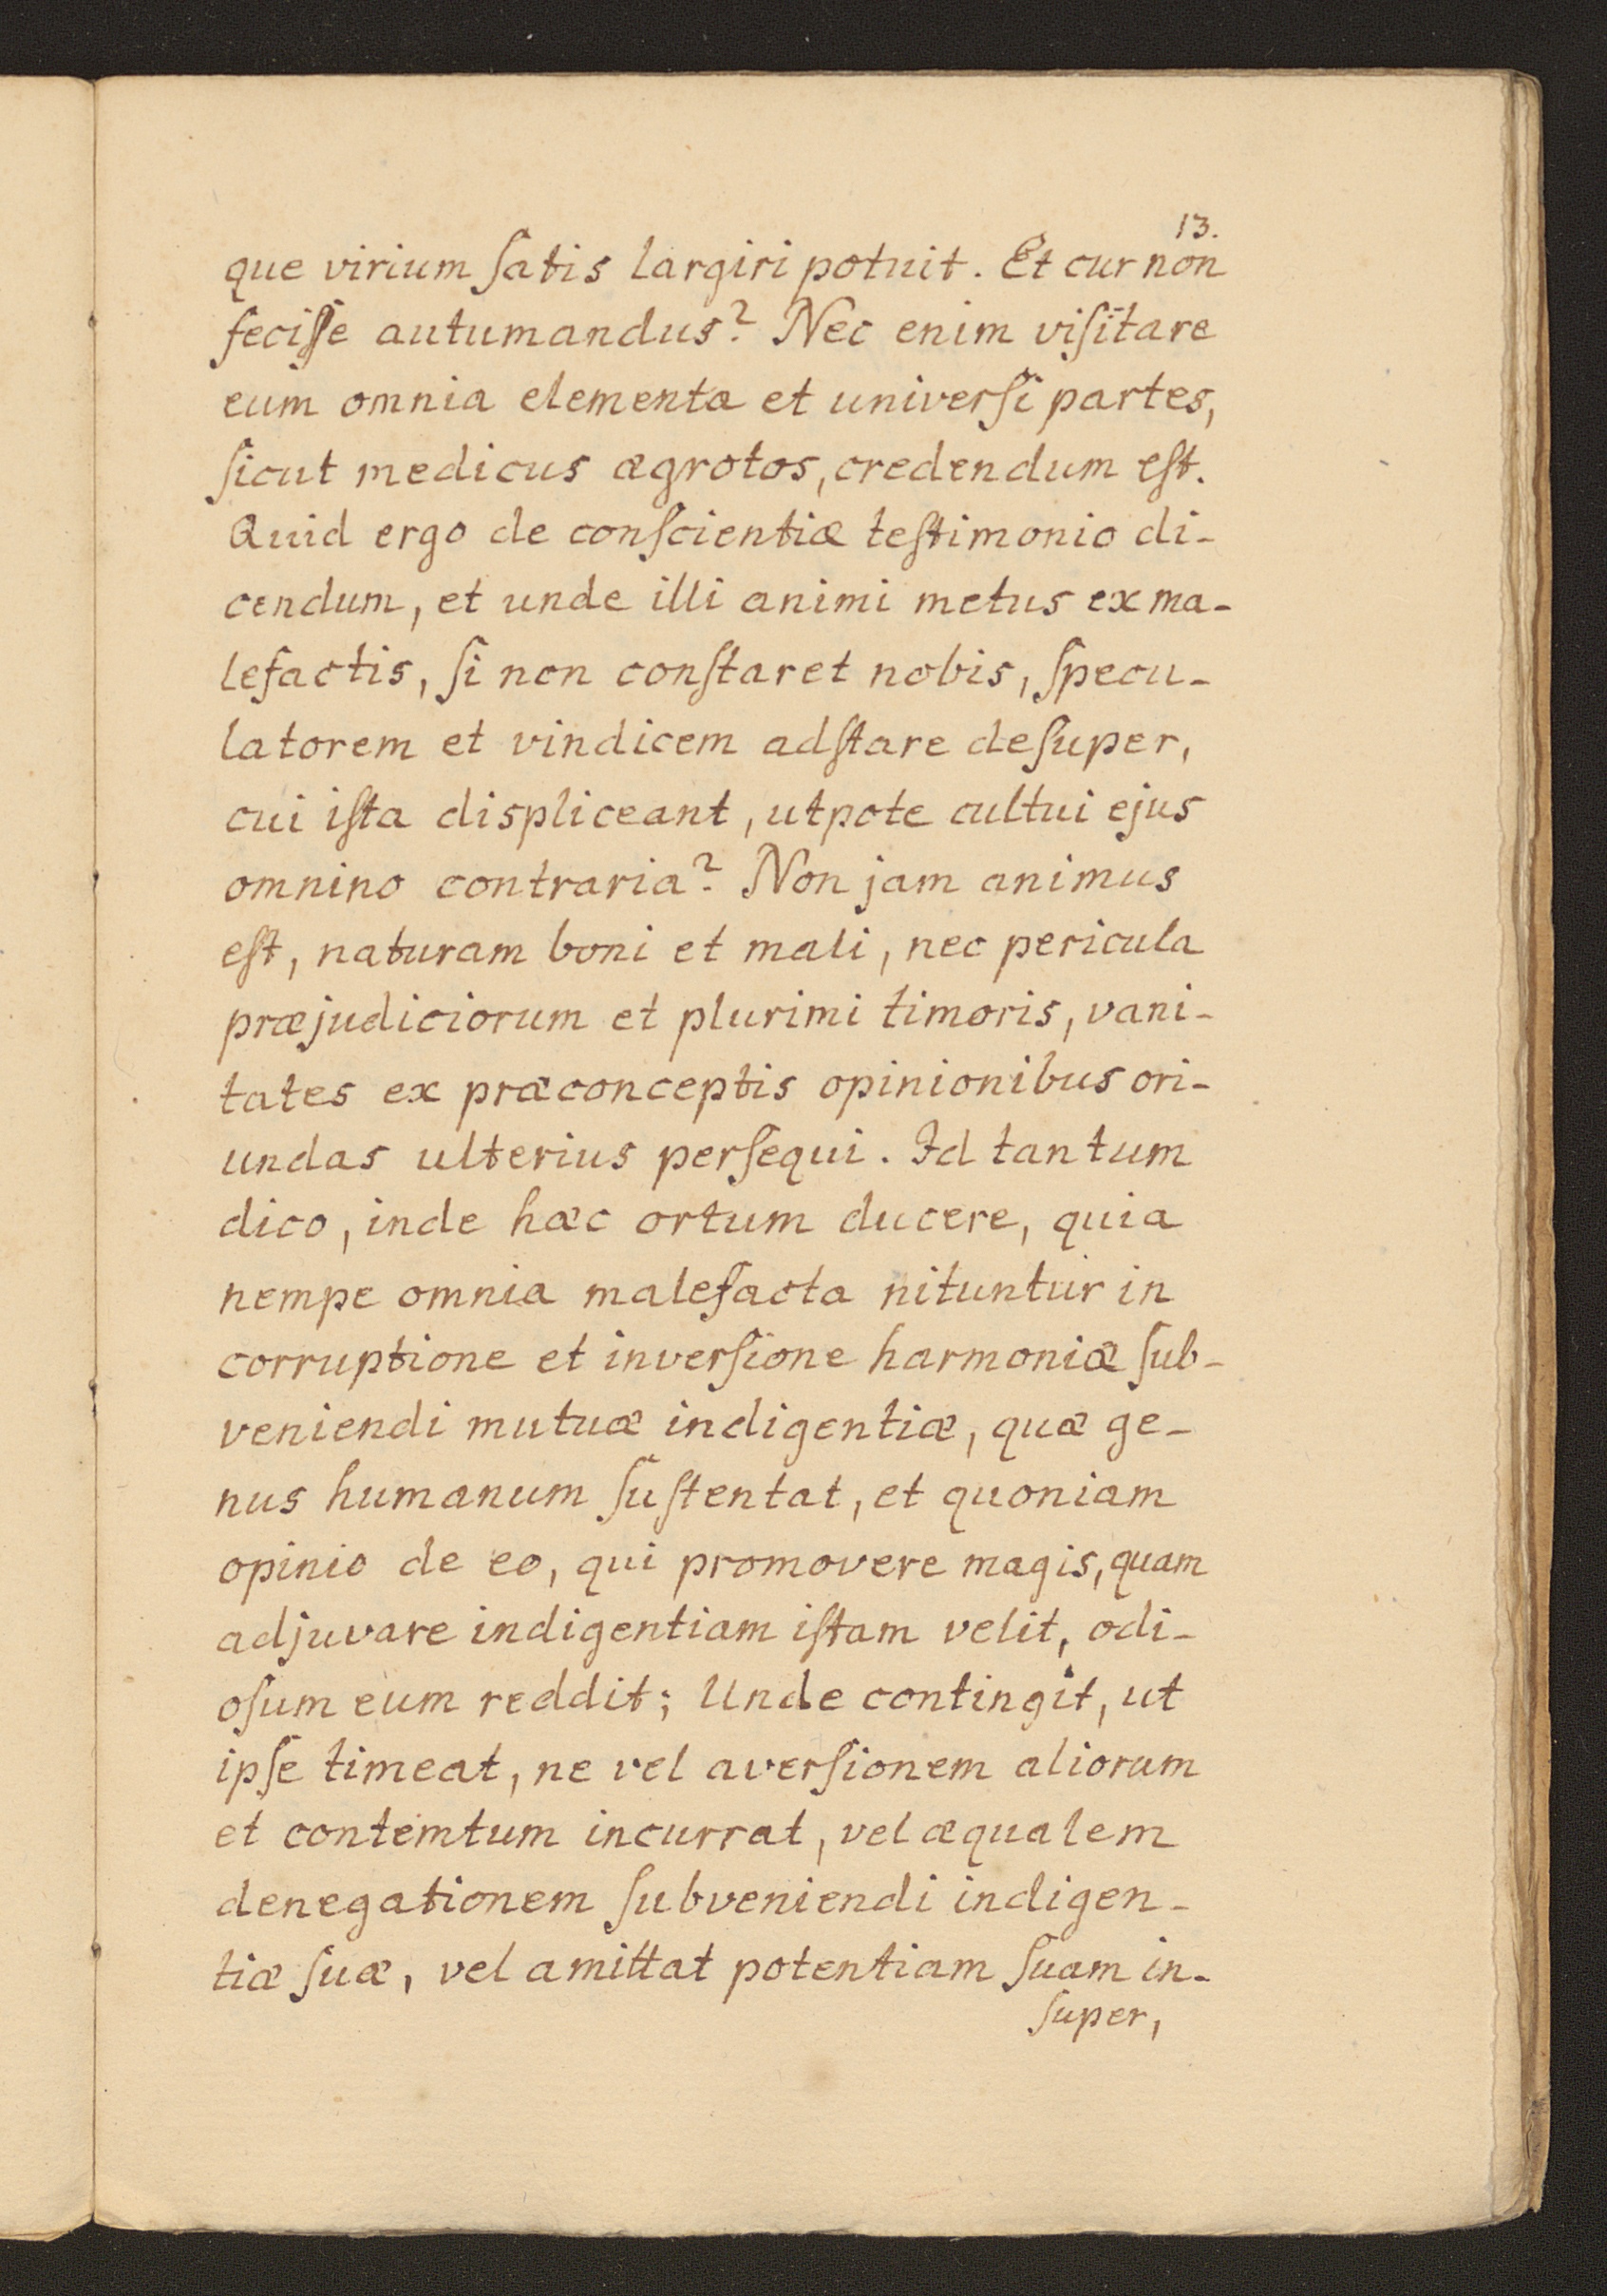 13.
que virium ſatis largiri potuit. Et cur non
feciſſe autumandus? Nec enim viſitare
eum omnia elementa et univerſi partes,
ſicut medicus ægrotos, credendum eſt.
Quid ergo de conſcientiæ teſtimonio di-
cendum, et unde illi animi metus ex ma-
lefactis, ſi non conſtaret nobis, ſpecu-
latorem et vindicem adſtare deſuper,
cui iſta displiceant, utpote cultui ejus
omnino contraria? Non jam animus
eſt, naturam boni et mali, nec pericula
præjudiciorum et plurimi timoris, vani-
tates ex præconceptis opinionibus ori-
undas ulterius perſequi. Id tantum
dico, inde hæc ortum ducere, quia
nempe omnia malefacta nituntur in
corruptione et inverſione harmoniæ ſub-
veniendi mutuæ indigentiæ, quæ ge-
nus humanum ſuſtentat, et quoniam
opinio de eo, qui promovere magis, quam
adjuvare indigentiam iſtam velit, odi-
oſum eum reddit; Unde contingit, ut
ipſe timeat, ne vel averſionem aliorum
et contemtum incurrat, vel æqualem
denegationem ſubveniendi indigen-
tiæ ſuæ, vel amittat potentiam ſuam in-
ſuper,